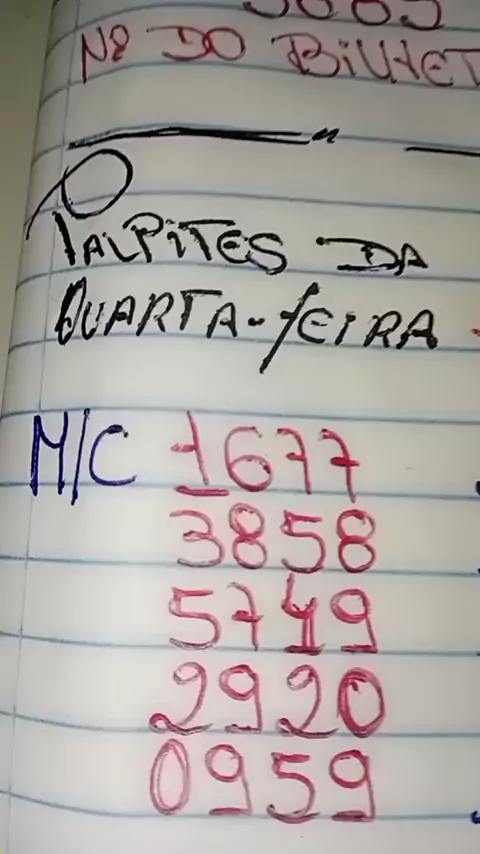 Nº DO BILHET
PALPITES DA
QUARTA-FEIRA
M/C 1677
3858
5749
2920
0959